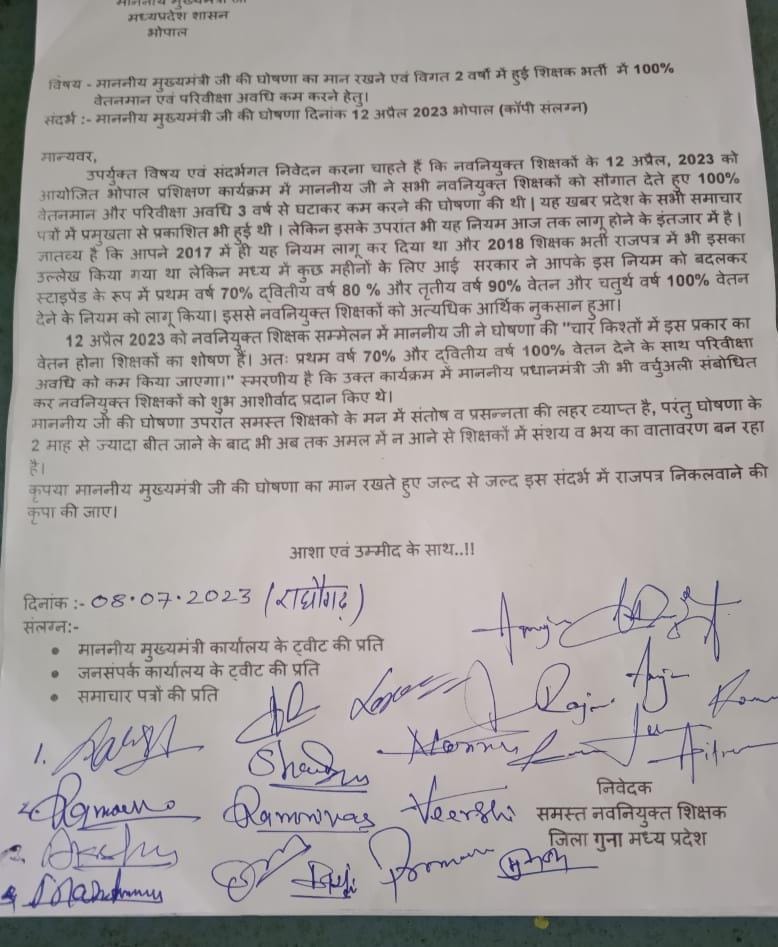 माननीय मुख्यमंत्री जी
मध्यप्रदेश शासन
भोपाल
विषय - माननीय मुख्यमंत्री जी की घोषणा का मान रखने एवं विगत 2 वर्षों में हुई शिक्षक भर्ती में 100%
वेतनमान एवं परिवीक्षा अवधि कम करने हेतु।
संदर्भ :- माननीय मुख्यमंत्री जी की घोषणा दिनांक 12 अप्रैल 2023 भोपाल (कॉपी संलग्न)
मान्यवर,
उपर्युक्त विषय एवं संदर्भगत निवेदन करना चाहते हैं कि नवनियुक्त शिक्षकों के 12 अप्रैल, 2023 को
आयोजित भोपाल प्रशिक्षण कार्यक्रम में माननीय जी ने सभी नवनियुक्त शिक्षकों को सौगात देते हुए 100%
वेतनमान और परिवीक्षा अवधि 3 वर्ष से घटाकर कम करने की घोषणा की थी | यह खबर प्रदेश के सभी समाचार
पत्रों में प्रमुखता से प्रकाशित भी हुई थी । लेकिन इसके उपरांत भी यह नियम आज तक लागू होने के इंतजार में है |
ज्ञातव्य है कि आपने 2017 में ही यह नियम लागू कर दिया था और 2018 शिक्षक भर्ती राजपत्र में भी इसका
उल्लेख किया गया था लेकिन मध्य में कुछ महीनों के लिए आई सरकार ने आपके इस नियम को बदलकर
स्टाइपेंड के रूप में प्रथम वर्ष 70% द्वितीय वर्ष 80 % और तृतीय वर्ष 90% वेतन और चतुर्थ वर्ष 100% वेतन
देने के नियम को लागू किया। इससे नवनियुक्त शिक्षकों को अत्यधिक आर्थिक नुकसान हुआ।
12 अप्रैल 2023 को नवनियुक्त शिक्षक सम्मेलन में माननीय जी ने घोषणा की "चार किश्तों में इस प्रकार का
वेतन होना शिक्षकों का शोषण है। अतः प्रथम वर्ष 70% और द्वितीय वर्ष 100% वेतन देने के साथ परिवीक्षा
अवधि को कम किया जाएगा।" स्मरणीय है कि उक्त कार्यक्रम में माननीय प्रधानमंत्री जी भी वर्चुअली संबोधित
कर नवनियुक्त शिक्षकों को शुभ आशीर्वाद प्रदान किए थे।
माननीय जी की घोषणा उपरांत समस्त शिक्षको के मन में संतोष व प्रसन्नता की लहर व्याप्त है, परंतु घोषणा के
2 माह से ज्यादा बीत जाने के बाद भी अब तक अमल में न आने से शिक्षकों में संशय व भय का वातावरण बन रहा
है।
कृपया माननीय मुख्यमंत्री जी की घोषणा का मान रखते हुए जल्द से जल्द इस संदर्भ में राजपत्र निकलवाने की
कृपा की जाए।
आशा एवं उम्मीद के साथ..!!
दिनांक :- 08.07.2023 (राघौगढ़)
संलग्न:-
• माननीय मुख्यमंत्री कार्यालय के ट्वीट की प्रति
• जनसंपर्क कार्यालय के ट्वीट की प्रति
• समाचार पत्रों की प्रति
1.
Ramnivas
निवेदक
समस्त नवनियुक्त शिक्षक
जिला गुना मध्य प्रदेश